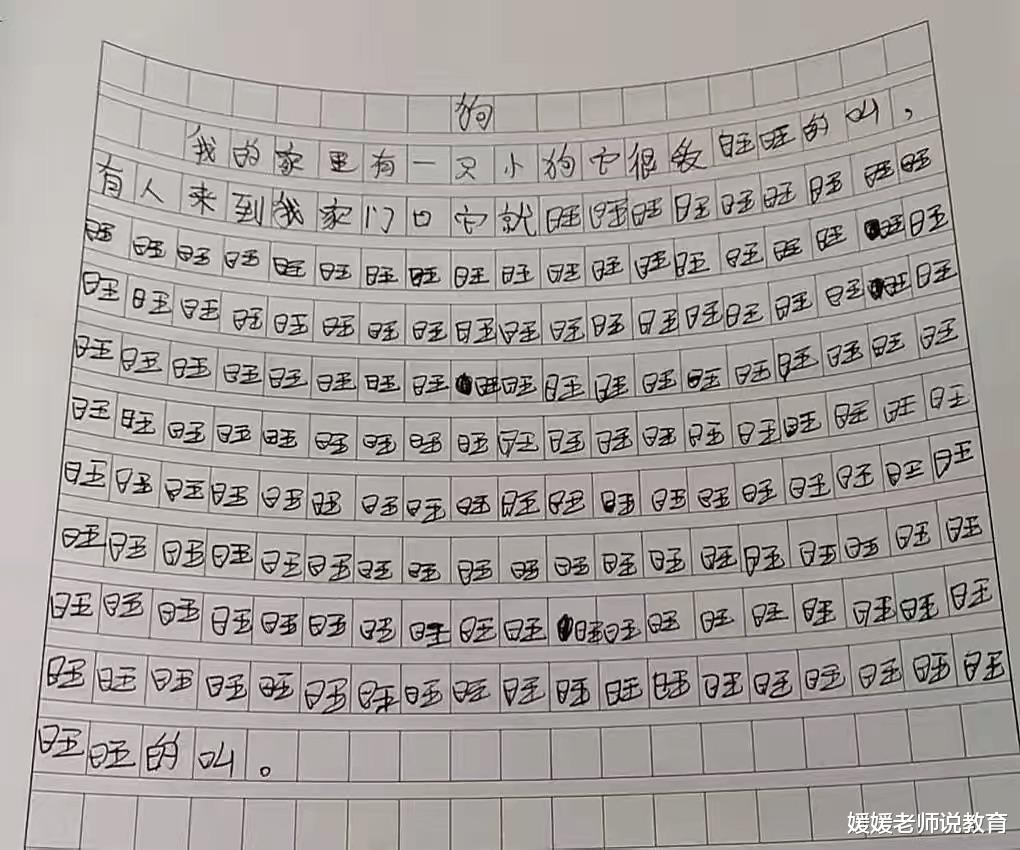 狗
我的家里有一只小狗它很旺旺的叫，
有人来到我家门口它就旺旺旺旺旺旺旺旺旺
旺旺旺旺旺旺旺旺旺旺旺旺旺旺旺旺旺旺旺
旺旺旺旺旺旺旺旺旺旺旺旺旺旺旺旺旺旺旺
旺旺旺旺旺旺旺旺旺旺旺旺旺旺旺旺旺旺旺
旺旺旺旺旺旺旺旺旺旺旺旺旺旺旺旺旺旺旺
旺旺旺旺旺旺旺旺旺旺旺旺旺旺旺旺旺旺旺
旺旺旺旺旺旺旺旺旺旺旺旺旺旺旺旺旺旺旺
旺旺旺旺旺旺旺旺旺旺旺旺旺旺旺旺旺旺旺
旺旺旺旺旺旺旺旺旺旺旺旺旺旺旺旺旺旺旺
旺旺的叫。
媛媛老师说教育